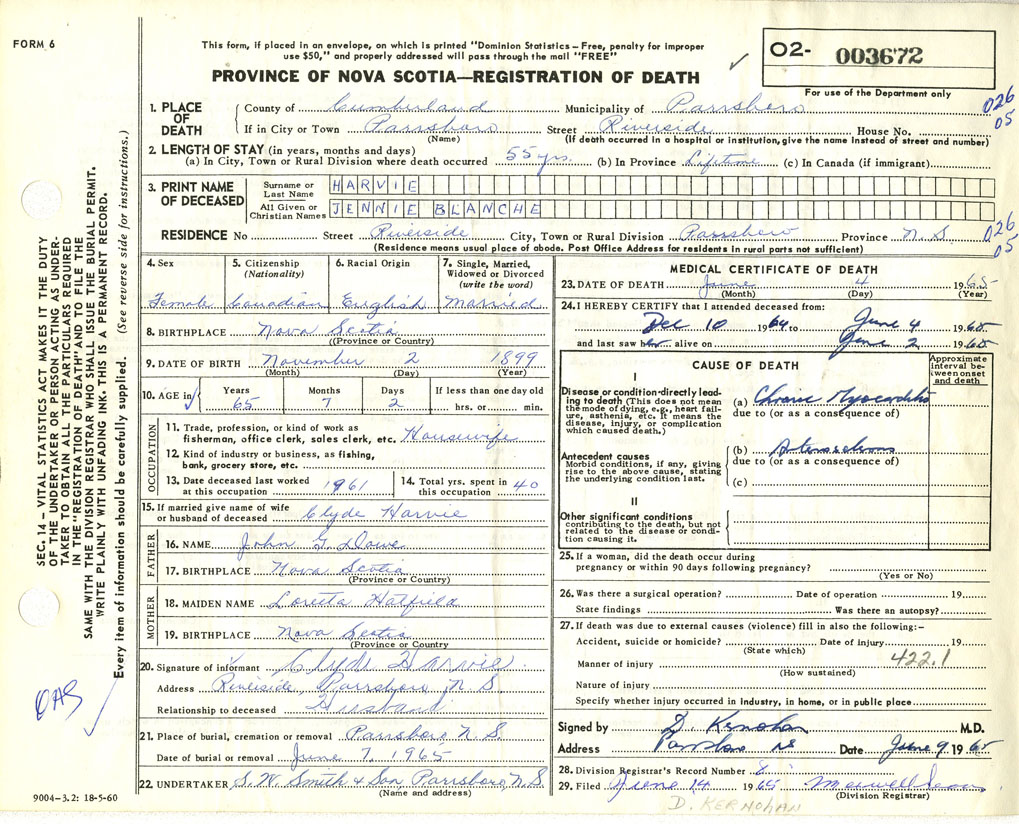 FORM 6
This form, if placed in an envelope, on which is printed "Dominion Statistics – Free, penalty for improper
use $50," and properly addressed will pass through the mail "FREE"
PROVINCE OF NOVA SCOTIA—REGISTRATION OF DEATH
O2- 003672
For use of the Department only
026
05
1. PLACE OF DEATH
County of Cumberland Municipality of Parrsboro
If in City or Town Parrsboro Street Riverside House No.
(Name) (If death occurred in a hospital or institution, give the name instead of street and number)
2. LENGTH OF STAY (in years, months and days)
(a) In City, Town or Rural Division where death occurred 55 yrs. (b) In Province Lifetime (c) In Canada (if immigrant)
3. PRINT NAME OF DECEASED
Surname or Last Name HARVIE
All Given or Christian Names JENNIE BLANCHE
RESIDENCE No Street Riverside City, Town or Rural Division Parrsboro Province N. S
026
05
(Residence means usual place of abode. Post Office Address for residents in rural parts not sufficient)
4. Sex Female
5. Citizenship (Nationality) Canadian
6. Racial Origin English
7. Single, Married, Widowed or Divorced (write the word) Married
8. BIRTHPLACE Nova Scotia
(Province or Country)
9. DATE OF BIRTH November 2 1899
(Month) (Day) (Year)
10. AGE in Years 65 Months 7 Days 2 If less than one day old hrs. or min.
OCCUPATION
11. Trade, profession, or kind of work as
fisherman, office clerk, sales clerk, etc. Housewife
12. Kind of industry or business, as fishing,
bank, grocery store, etc.
13. Date deceased last worked
at this occupation 1961
14. Total yrs. spent in
this occupation 40
15. If married give name of wife
or husband of deceased Clyde Harvie
FATHER
16. NAME John G. Dowe
17. BIRTHPLACE Nova Scotia
(Province or Country)
MOTHER
18. MAIDEN NAME Loretta Hatfield
19. BIRTHPLACE Nova Scotia
(Province or Country
20. Signature of informant Clyde Harvie
Address Riverside, Parrsboro, N S
Relationship to deceased Husband
21. Place of burial, cremation or removal Parrsboro N. S.
Date of burial or removal June 7, 1965
22. UNDERTAKER S. W. Smith & Son, Parrsboro, N. S.
(Name and address)
MEDICAL CERTIFICATE OF DEATH
23. DATE OF DEATH June 4 1965
(Month) (Day) (Year)
24. I HEREBY CERTIFY that I attended deceased from:
Dec 10 1964 to June 4 1965
and last saw her alive on June 2 1965
CAUSE OF DEATH
Approximate interval between onset and death
I
Disease or condition directly leading to death (This does not mean the mode of dying, e.g., heart failure, asthenia, etc. It means the disease, injury, or complication which caused death.)
(a) Chronic Myocarditis
due to (or as a consequence of)
Antecedent causes
Morbid conditions, if any, giving rise to the above cause, stating the underlying condition last.
(b)
due to (or as a consequence of)
(c)
II
Other significant conditions
contributing to the death, but not related to the disease or condition causing it.
25. If a woman, did the death occur during
pregnancy or within 90 days following pregnancy?
(Yes or No)
26. Was there a surgical operation? Date of operation 19
State findings Was there an autopsy?
27. If death was due to external causes (violence) fill in also the following:–
Accident, suicide or homicide? Date of injury 19
(State which)
Manner of injury 422.1
(How sustained)
Nature of injury
Specify whether injury occurred in industry, in home, or in public place
Signed by D. Kernohan M.D.
Address Parrsboro NS Date June 9 1965
28. Division Registrar's Record Number 8
29. Filed June 14 1965 Maxwell
(Division Registrar)
D. KERNOHAN
SEC. 14 – VITAL STATISTICS ACT MAKES IT THE DUTY
OF THE UNDERTAKER OR PERSON ACTING AS UNDERTAKER
TO OBTAIN ALL THE PARTICULARS REQUIRED
IN THE "REGISTRATION OF DEATH" AND TO FILE THE
SAME WITH THE DIVISION REGISTRAR WHO SHALL ISSUE THE BURIAL PERMIT.
WRITE PLAINLY WITH UNFADING INK. THIS IS A PERMANENT RECORD.
Every item of information should be carefully supplied. (See reverse side for instructions.)
OAS
9004-3.2: 18-5-60